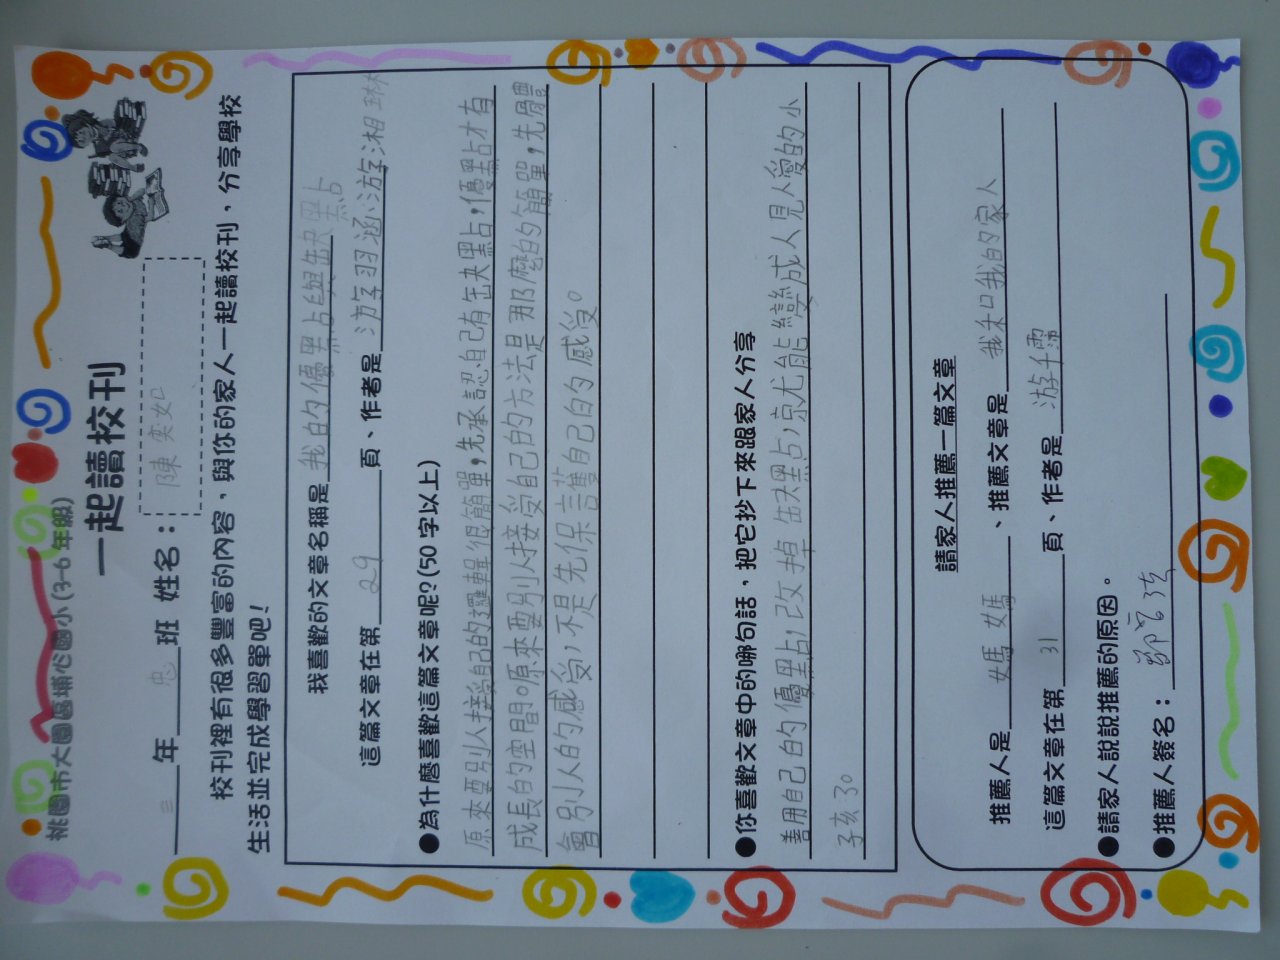 桃園市大園區埔心國小(3-6年級)
一起讀校刊
三年忠班 姓名：陳奕妃
校刊裡有很多豐富的內容，與你的家人一起讀校刊，分享學校
生活並完成學習單吧！
我喜歡的文章名稱是我的優點與缺點
這篇文章在第29頁、作者是游羽涵、游湘琳
●為什麼喜歡這篇文章呢?(50字以上)
原來要別人接受自己的邏輯很簡單，先承認自己有缺點，優點才有
成長的空間。原來要別人接受自己的方法是那麼的簡單，先體
會別人的感受，不是先保護自己的感受。
●你喜歡文章中的哪句話，把它抄下來跟家人分享
善用自己的優點，改掉缺點，就能變成人見人愛的小
孩了。
請家人推薦一篇文章
推薦人是媽媽、推薦文章是我和我的家人
這篇文章在第31頁、作者是游千霈
●請家人說說推薦的原因。
●推薦人簽名：